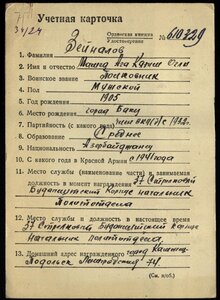 Учетная карточка
Орденская книжка
Удостоверение
№ 610329
1. Фамилия Зейналов
2. Имя и отчество Ага Оглы
3. Воинское звание Полковник
4. Пол Мужской
5. Год рождения 1905
6. Место рождения город Баку
7. Партийность (с какого года) член ВКП(б) с 1932 г.
8. Образование Среднее
9. Национальность Азербайджанец
10. С какого года в Красной Армии с 1941 года
11. Место службы (наименование части) и занимаемая
должность в момент награждения 37 Стрелковый
Будапештский Корпус начальник
Политотдела
12. Место службы и должность в настоящее время
37 Стрелковый Будапештский Корпус
Начальник политотдела
13. Домашний адрес награжденного город
(См. н/об.)